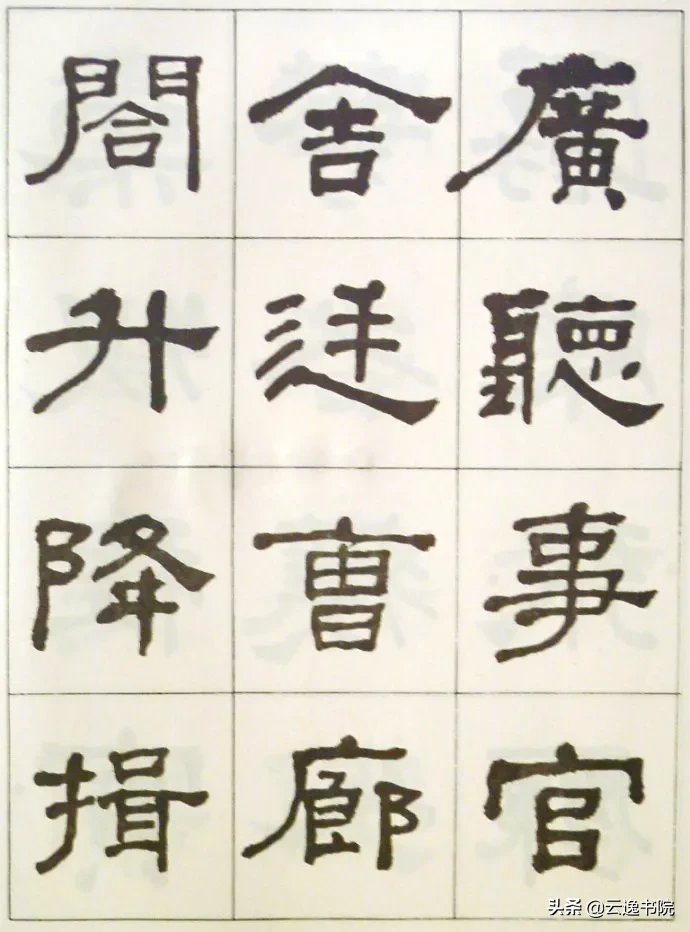 廣聽事官
舍廷曹廊
閤升降揖
头条 @云逸书院